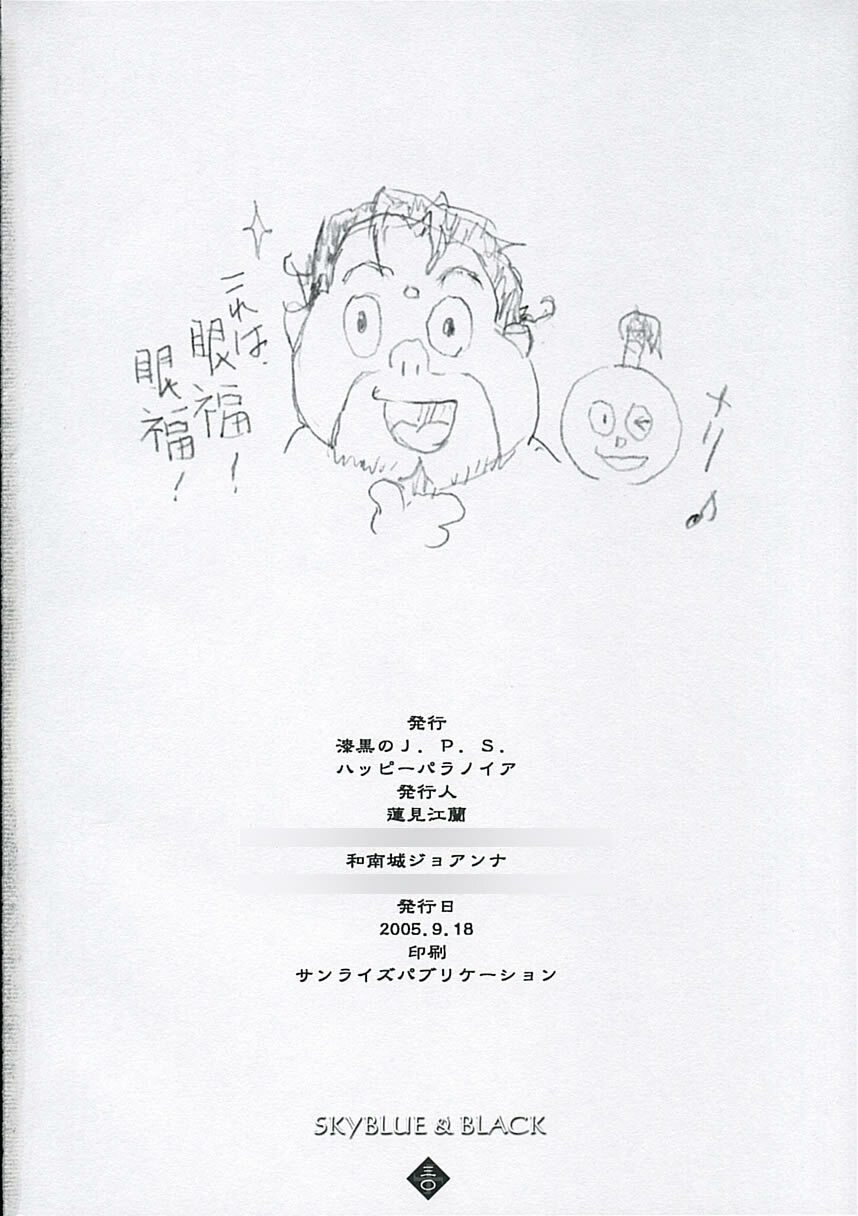 これは
眼福!
眼福!
メリ♪
発行
漆黒のJ.P.S.
ハッピーパラノイア
発行人
蓮見江蘭
和南城ジョアンナ
発行日
2005.9.18
印刷
サンライズパブリケーション
SKYBLUE & BLACK
三〇